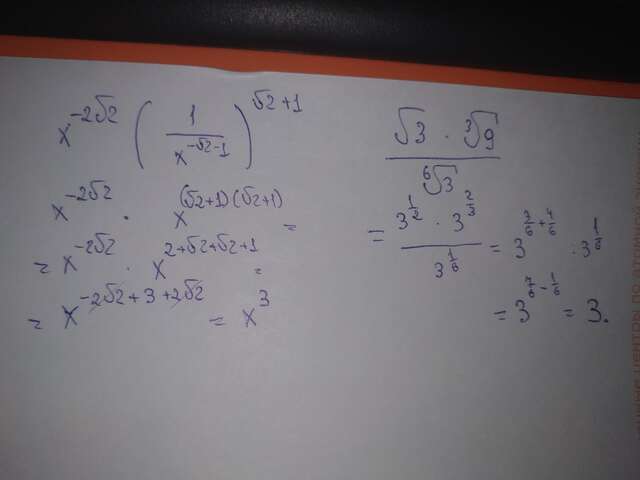 x^{-2√2} (1/x^{-√2-1})^{√2+1}
x^{-2√2} · x^{(√2+1)(√2+1)} =
= x^{-2√2} · x^{2+√2+√2+1} =
= x^{-2√2+3+2√2} = x^3
√3 · ∛9 / ⁶√3
= 3^{1/2} · 3^{2/3} / 3^{1/6} = 3^{3/6+4/6} : 3^{1/6}
= 3^{7/6-1/6} = 3.